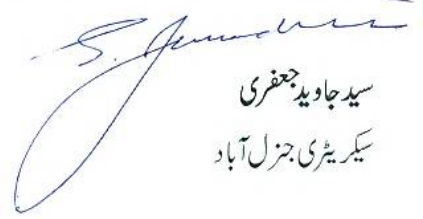 سید جاوید جعفری
سیکریٹری جنرل آباد